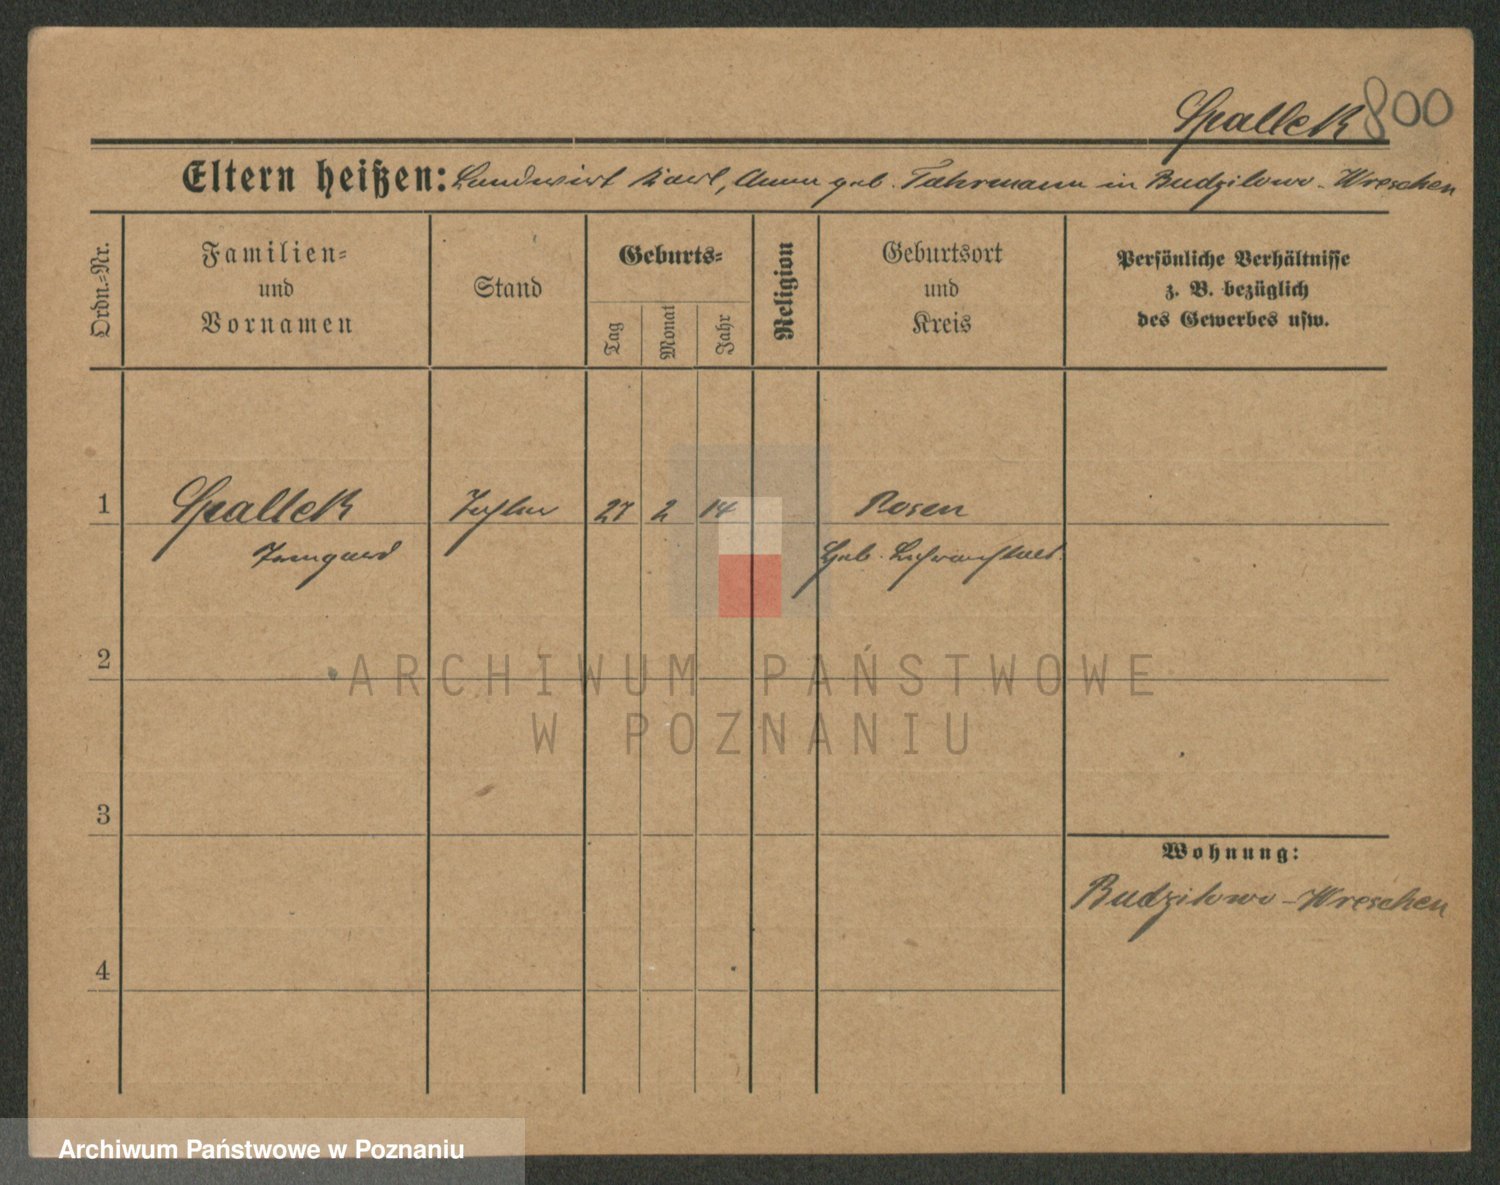 Spallek 800
Eltern heißen: Landwirt Karl, Anna geb. Fahrmann in Budzilowo - Wreschen
Ordn.-Nr.
Familien-
und
Vornamen
Stand
Geburts-
Tag
Monat
Jahr
Religion
Geburtsort
und
Kreis
Persönliche Verhältnisse
z. B. bezüglich
des Gewerbes usw.
1 Spallek 27 2 14 Rosen
Irmgard
2
3
Wohnung:
Budzilowo - Wreschen
4
ARCHIWUM PAŃSTWOWE
W POZNANIU
Archiwum Państwowe w Poznaniu